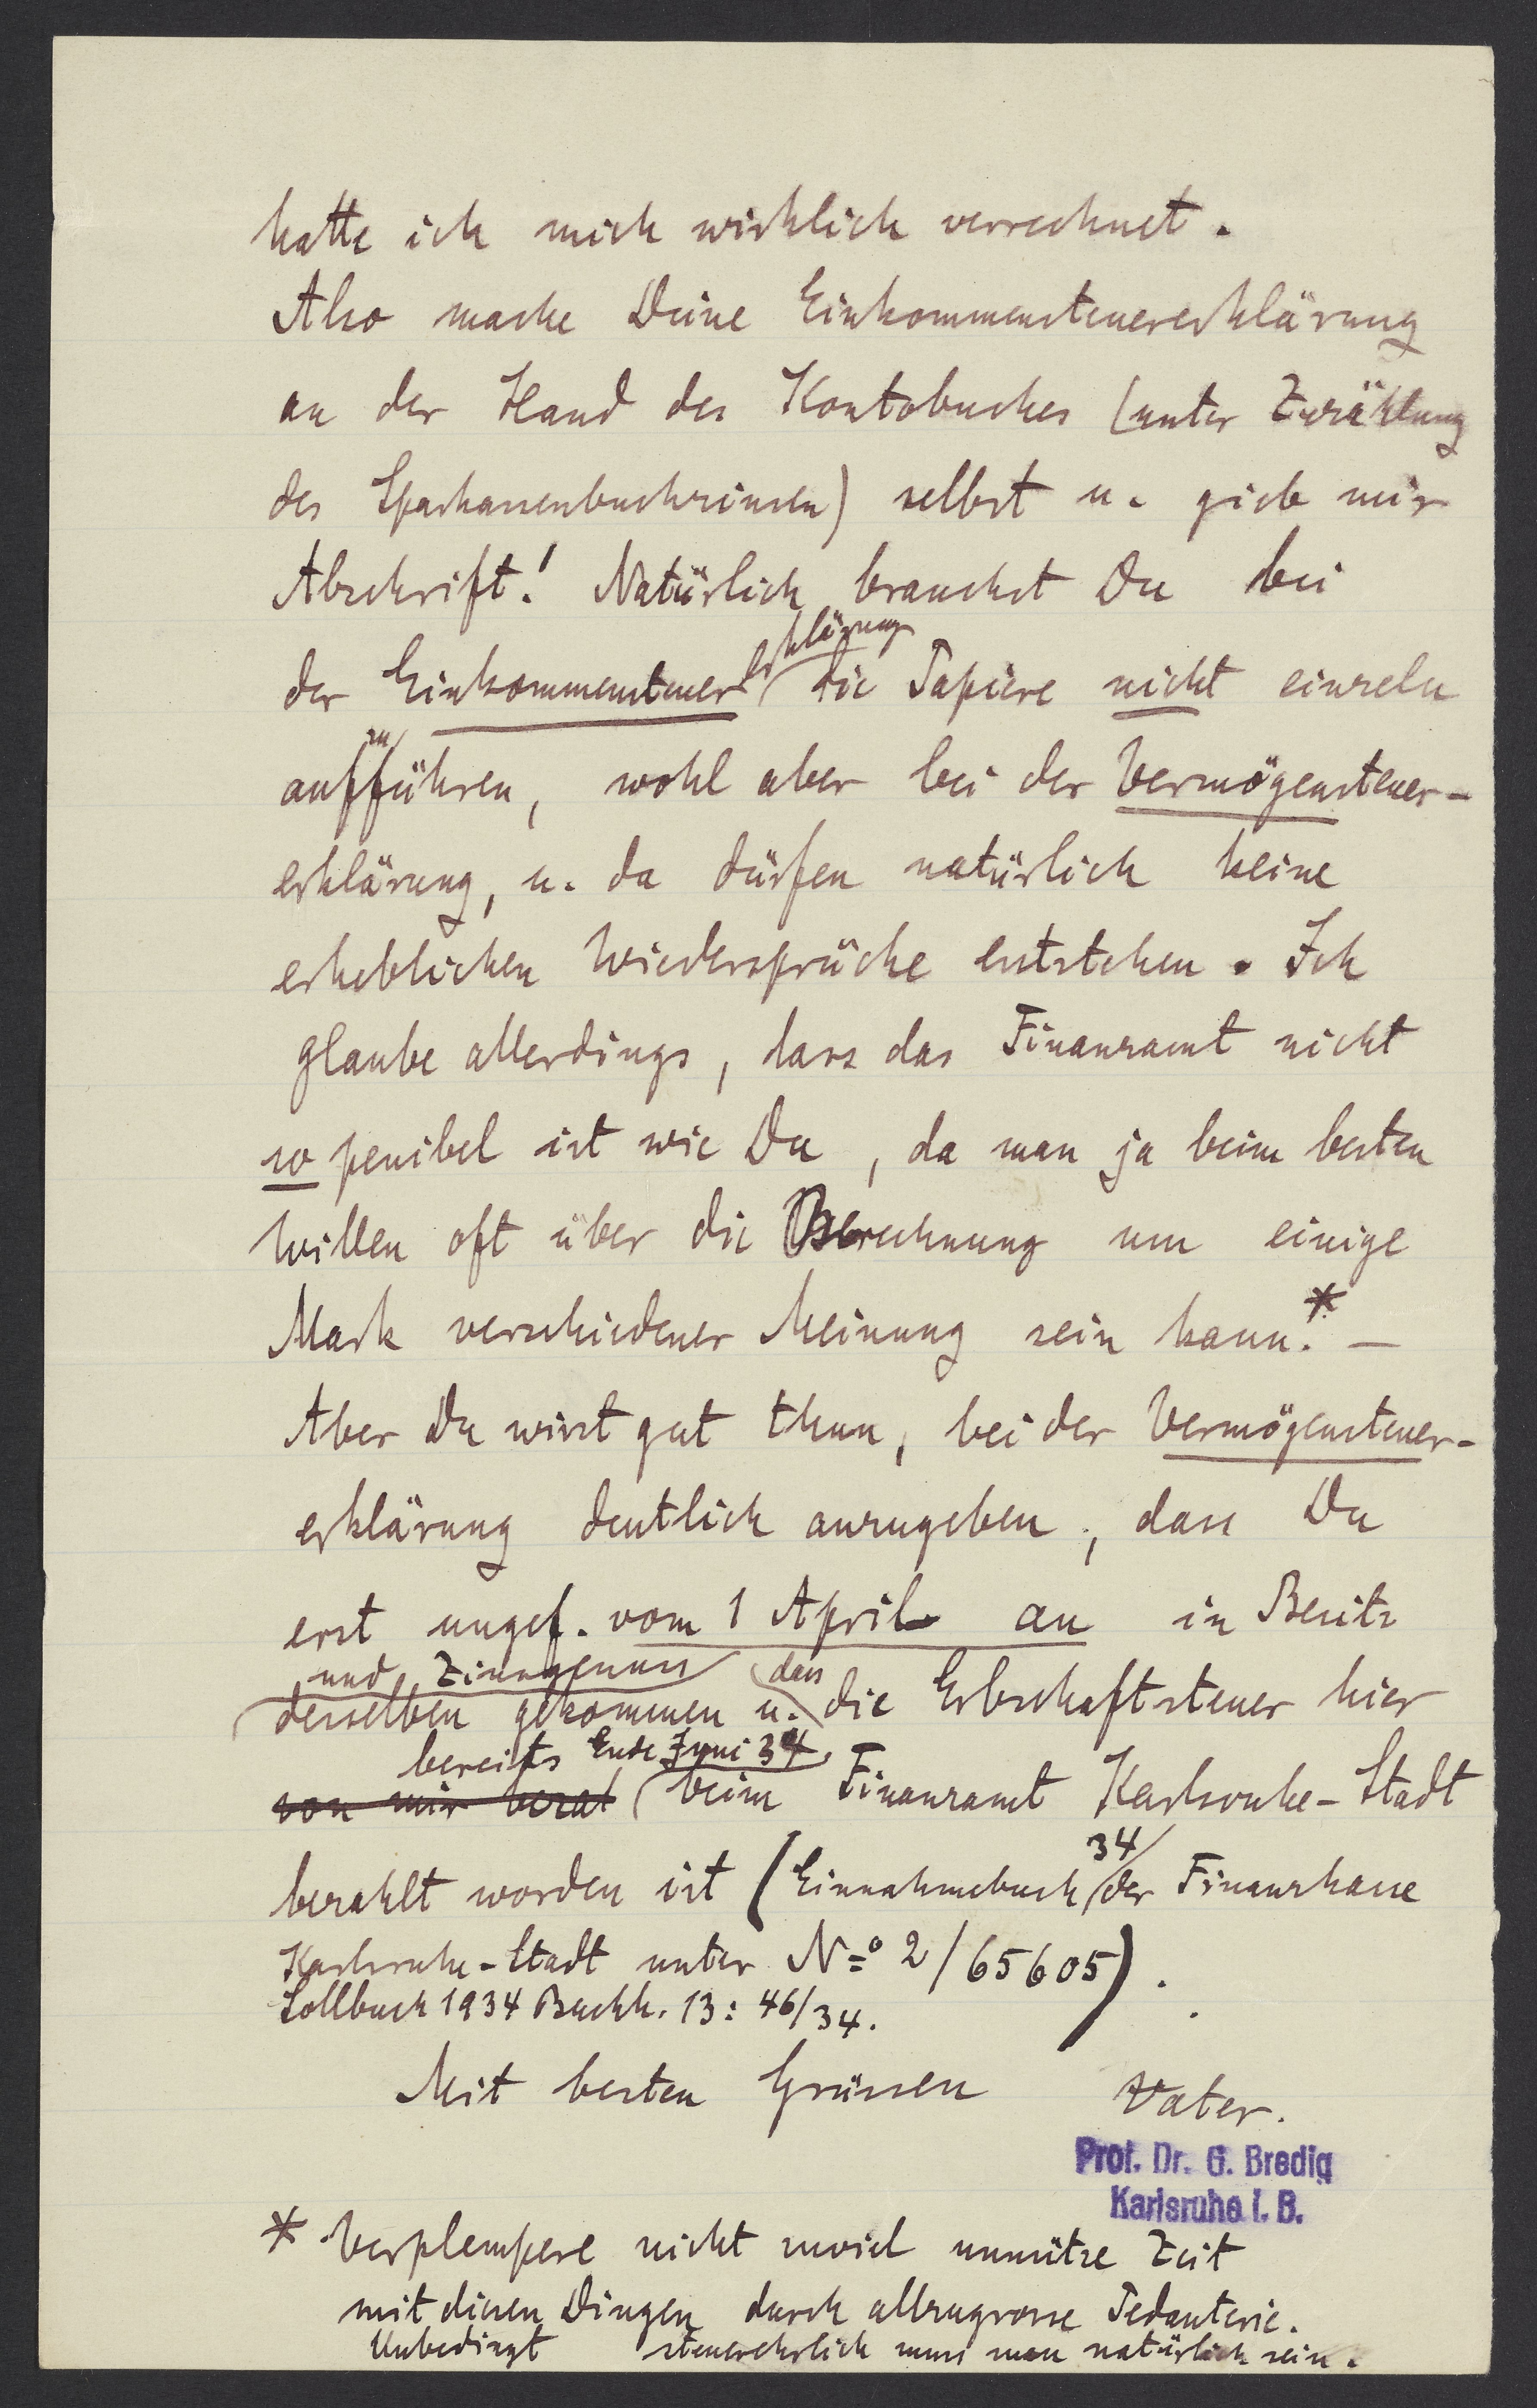 hatte ich mich wirklich verrechnet.
Also mache Deine Einkommensteuererklärung
an der Hand des Kontobuches (unter Zuzählung
der Sparkassenbuchzinsen) selbst u. gieb mir
Abschrift! Natürlich brauchst Du bei
der Einkommensteuererklärung die Papiere nicht einzeln
aufzuführen, wohl aber bei der Vermögensteuer-
erklärung, u. da dürfen natürlich keine
erheblichen Wiedersprüche entstehen. Ich
glaube allerdings, dass das Finanzamt nicht
so penibel ist wie Du, da man ja beim besten
Willen oft über die Berechnung um einige
Mark verschiedener Meinung sein kann.* –
Aber Du wirst gut thun, bei der Vermögensteuer-
erklärung deutlich anzugeben, dass Du
erst ungef. vom 1 April an in Besitz
und Zinsgenuss
desselben gekommen u. dass die Erbschaftsteuer hier
bereits Ende Juni 34
von mir bezal beim Finanzamt Karlsruhe-Stadt
bezahlt worden ist (Einnahmebuch 34 der Finanzkasse
Karlsruhe-Stadt unter No 2/65605).
Sollbuch 1934 Buchh. 13: 46/34.
Mit besten Grüssen Vater.
Prof. Dr. G. Bredig
Karlsruhe i. B.
* Verplempere nicht zuviel unnütze Zeit
mit diesen Dingen durch allzugrosse Pedanterie.
Unbedingt steuerehrlich muss man natürlich sein.